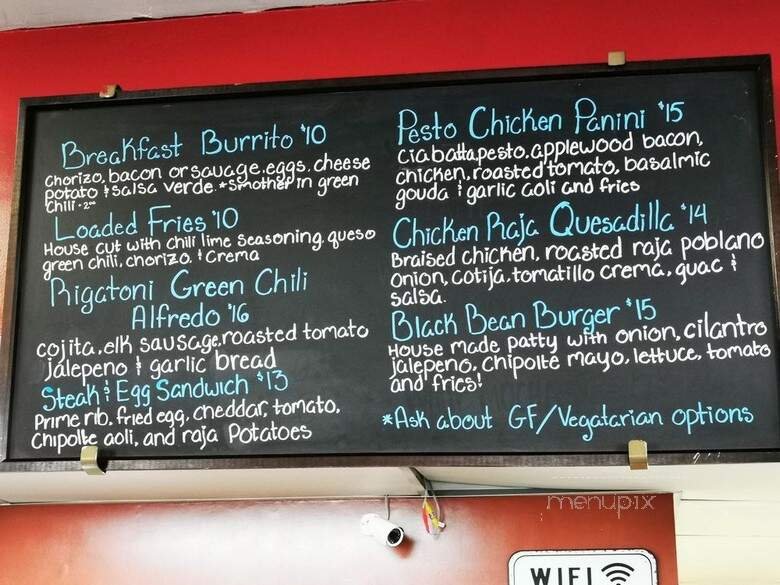 Breakfast Burrito $10
Chorizo, bacon or sauage, eggs, cheese
potato & salsa verde. *Smother in green
chili - 2⁰⁰
Loaded Fries $10
House cut with chili lime seasoning, queso
green chili, chorizo, & Crema
Rigatoni Green Chili
Alfredo $16
cojita, elk sausage, roasted tomato
jalepeno & garlic bread
Steak & Egg Sandwich $13
Prime rib, fried egg, cheddar, tomato,
Chipolte aoli, and raja Potatoes
Pesto Chicken Panini $15
Ciabatta, pesto, applewood bacon,
chicken, roasted tomato, basalmic
gouda & garlic aoli and fries
Chicken Raja Quesadilla $14
Braised chicken, roasted raja poblano
onion, cotija, tomatillo crema, guac &
salsa.
Black Bean Burger $15
House made patty with onion, cilantro
jalepeno, chipolte mayo, lettuce, tomato
and fries!
*Ask about GF/Vegatarian options
menupix
WIFI